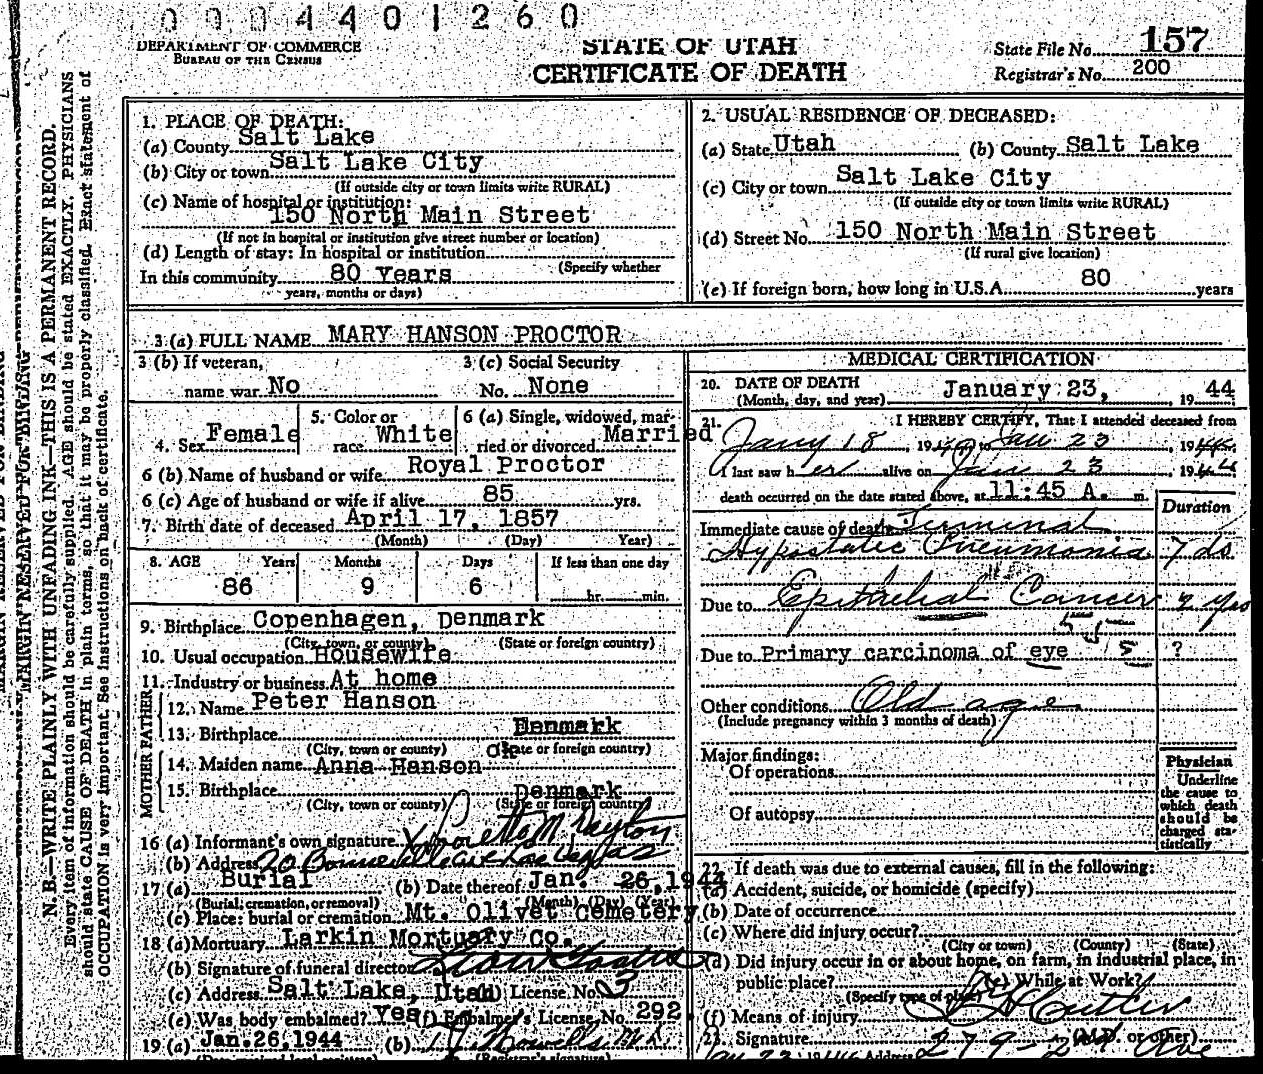 0004401260
DEPARTMENT OF COMMERCE
BUREAU OF THE CENSUS
STATE OF UTAH
CERTIFICATE OF DEATH
State File No. 157
Registrar's No. 200
N. B.—WRITE PLAINLY WITH UNFADING INK—THIS IS A PERMANENT RECORD.
Every item of information should be carefully supplied. AGE should be stated EXACTLY. PHYSICIANS
should state CAUSE OF DEATH in plain terms, so that it may be properly classified. Exact statement of
OCCUPATION is very important. See instructions on back of certificate.
1. PLACE OF DEATH:
(a) County Salt Lake
(b) City or town Salt Lake City
(If outside city or town limits write RURAL)
(c) Name of hospital or institution:
150 North Main Street
(If not in hospital or institution give street number or location)
(d) Length of stay: In hospital or institution
(Specify whether
In this community 80 Years
years, months or days)
2. USUAL RESIDENCE OF DECEASED:
(a) State Utah (b) County Salt Lake
(c) City or town Salt Lake City
(If outside city or town limits write RURAL)
(d) Street No. 150 North Main Street
(If rural give location)
(e) If foreign born, how long in U.S.A. 80 years
3 (a) FULL NAME MARY HANSON PROCTOR
3 (b) If veteran,
name war No
3 (c) Social Security
No. None
4. Sex Female
5. Color or
race White
6 (a) Single, widowed, mar-
ried or divorced Married
6 (b) Name of husband or wife Royal Proctor
6 (c) Age of husband or wife if alive 85 yrs.
7. Birth date of deceased April 17, 1857
(Month) (Day) Year)
8. AGE Years Months Days If less than one day
86 9 6 hr. min.
9. Birthplace Copenhagen, Denmark
(City, town, or county) (State or foreign country)
10. Usual occupation Housewife
11. Industry or business At home
FATHER
12. Name Peter Hanson
13. Birthplace Denmark
(City, town or county) (State or foreign country)
MOTHER
14. Maiden name Anna Hanson ok
15. Birthplace Denmark
(City, town or county) (State or foreign country)
16 (a) Informant's own signature
(b) Address
17 (a) Burial (b) Date thereof Jan. 26, 1944
(Burial, cremation, or removal) (Month) (Day) (Year)
(c) Place: burial or cremation Mt. Olivet Cemetery
18 (a) Mortuary Larkin Mortuary Co.
(b) Signature of funeral director
(c) Address Salt Lake, Utah (d) License No. 3
(e) Was body embalmed? Yes (f) Embalmer's License No. 292
19 (a) Jan. 26, 1944 (b)
(Registrar's signature)
MEDICAL CERTIFICATION
20. DATE OF DEATH
(Month, day, and year) January 23, 1944
21. I HEREBY CERTIFY, That I attended deceased from
Jany 18, 19 to Jan 23, 1944
I last saw her alive on Jan 23, 1944
death occurred on the date stated above, at 11:45 A. m.
Duration
Immediate cause of death Terminal
Hypostatic Pneumonia 7 ds
Due to Epithelial Cancer 2 yrs
55
Due to Primary carcinoma of eye ?
Other conditions Old age
(Include pregnancy within 3 months of death)
Major findings:
Of operations
Of autopsy
Physician
Underline
the cause to
which death
should be
charged sta-
tistically
22. If death was due to external causes, fill in the following:
(a) Accident, suicide, or homicide (specify)
(b) Date of occurrence
(c) Where did injury occur?
(City or town) (County) (State)
(d) Did injury occur in or about home, on farm, in industrial place, in
public place? (e) While at Work?
(Specify type of place)
(f) Means of injury
23. Signature Cutler (M.D. or other)
Address